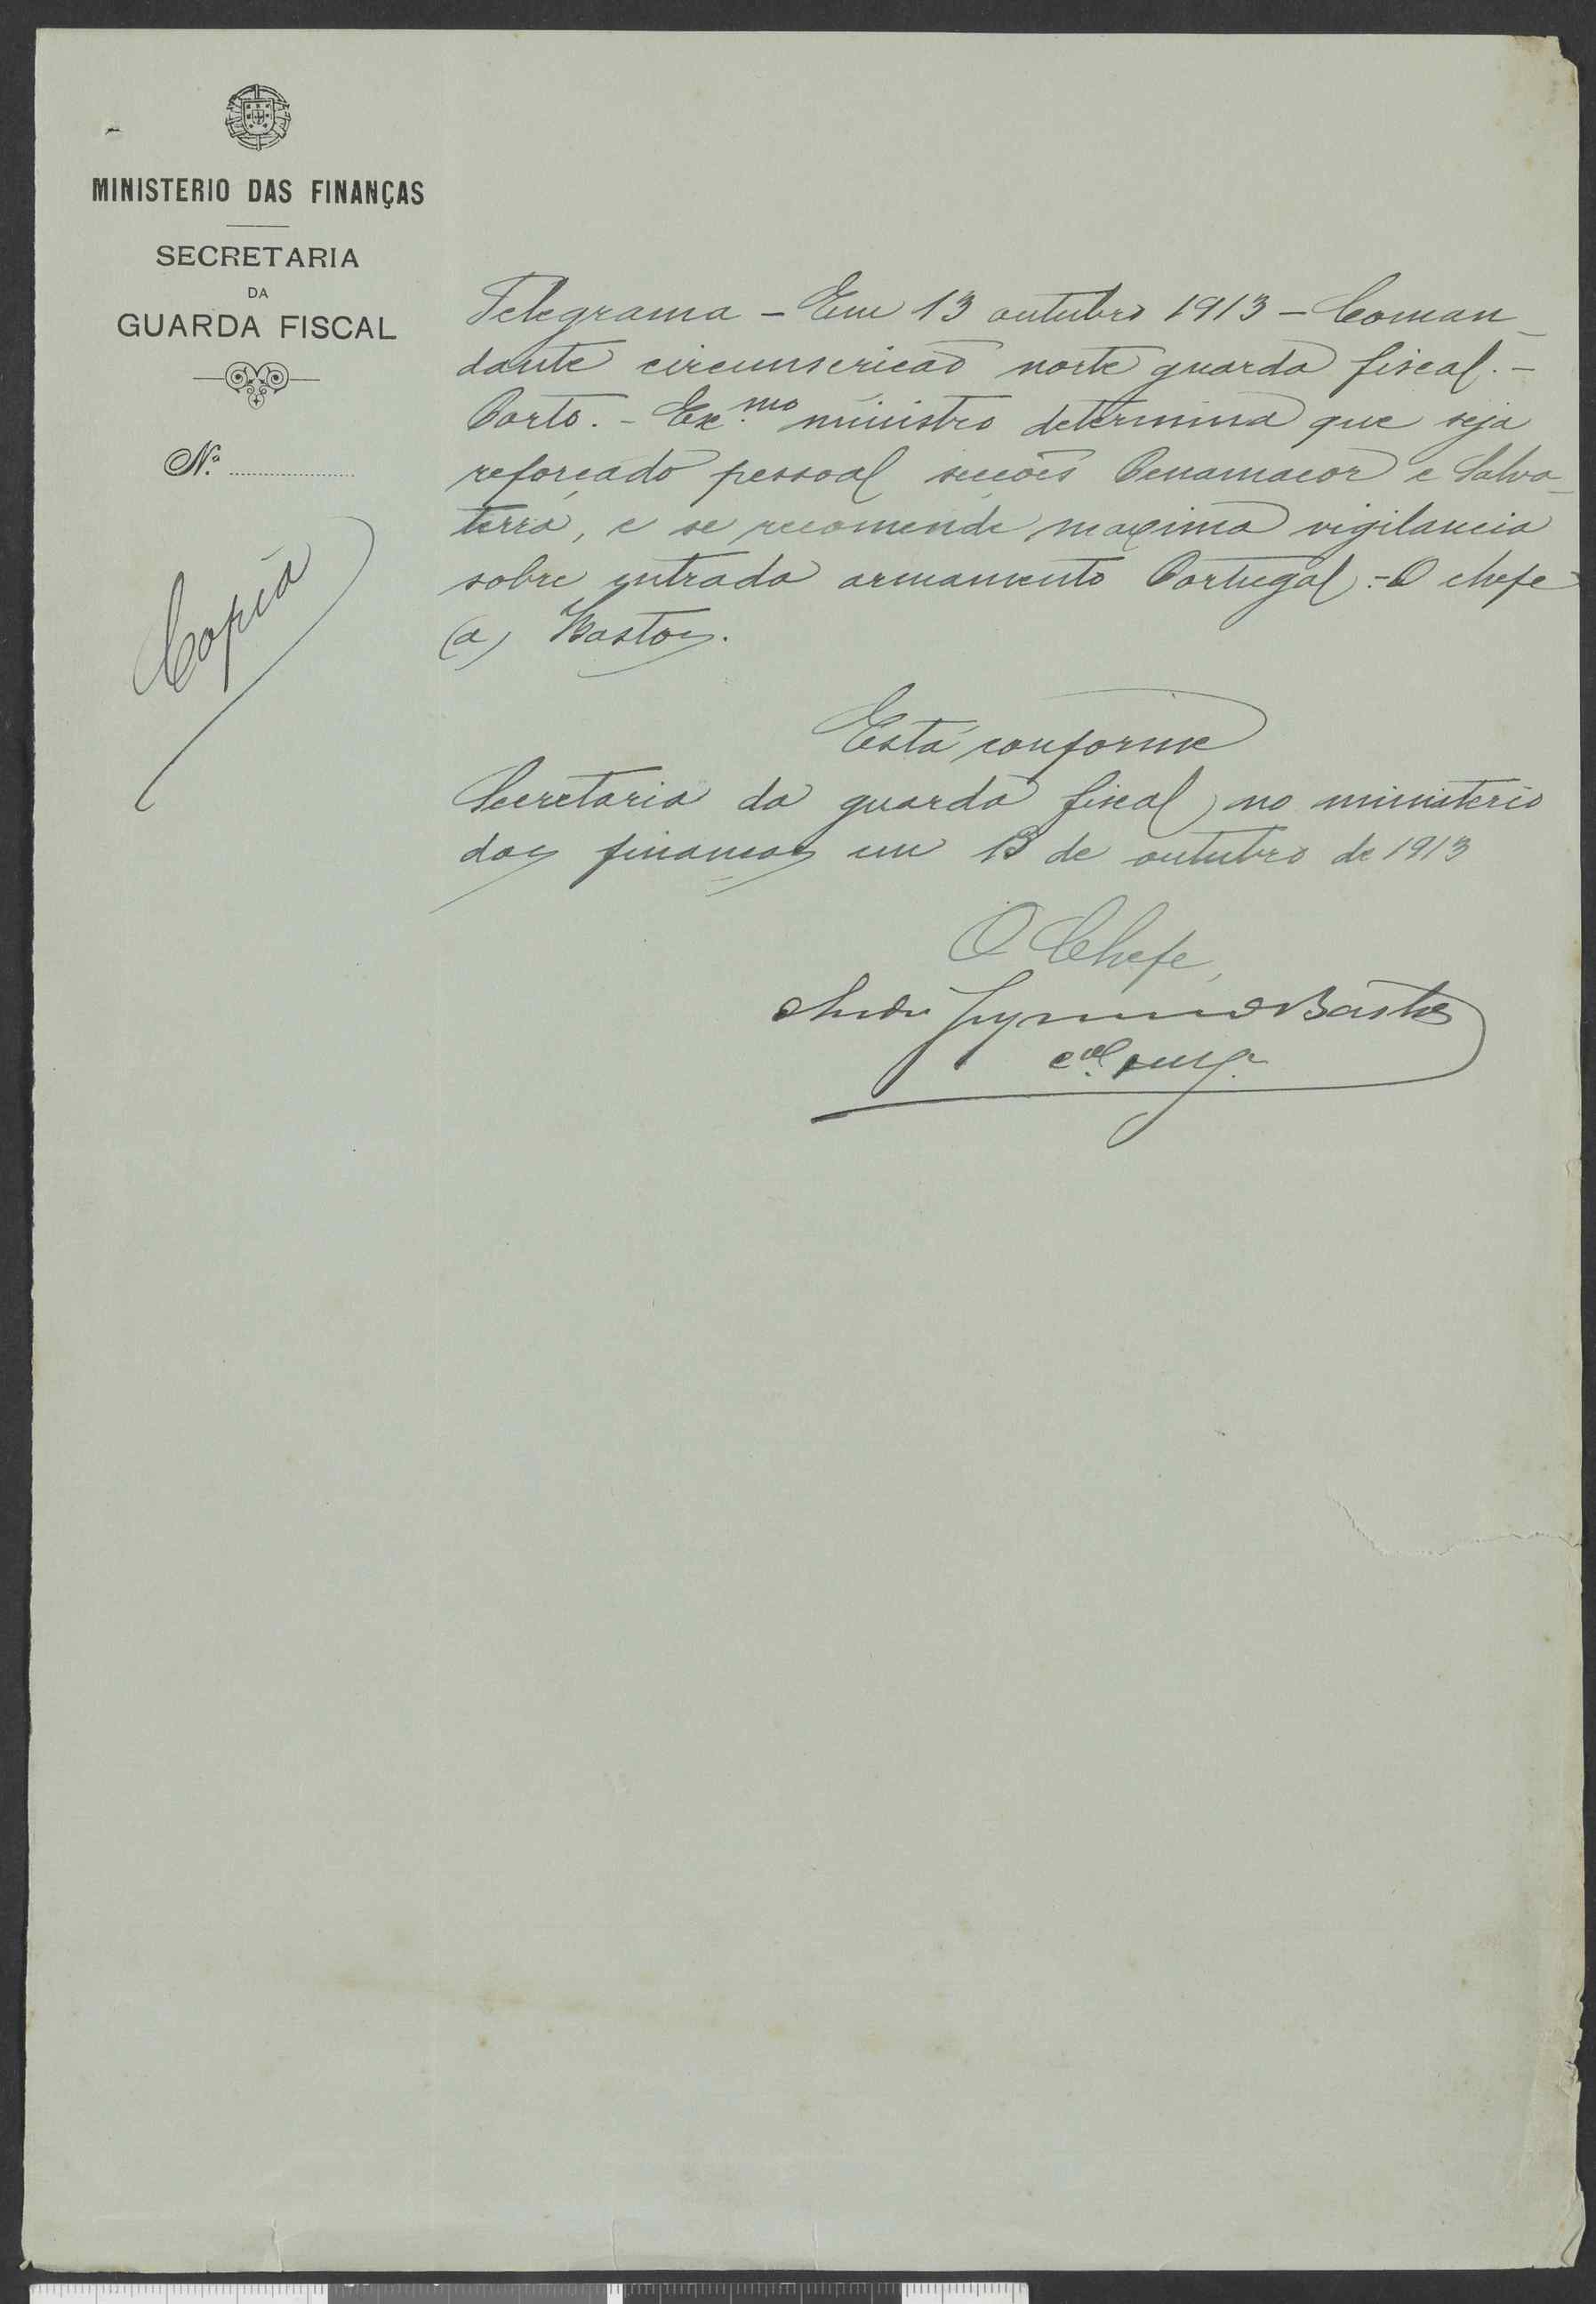 MINISTERIO DAS FINANÇAS
SECRETARIA
DA
GUARDA FISCAL
N.º
Copia
Telegrama - Em 13 outubro 1913 - Coman-
dante circunscricão norte guarda fiscal. -
Porto. - Ex.mo ministro determina que seja
reforçado pessoal secções Penamacor e Salva-
terra, e se recomende maxima vigilancia
sobre entrada armamento Portugal. - O chefe
(a) Bastos.
Está conforme
Secretaria da guarda fiscal no ministerio
das finanças em 13 de outubro de 1913
O Chefe,
Bastos